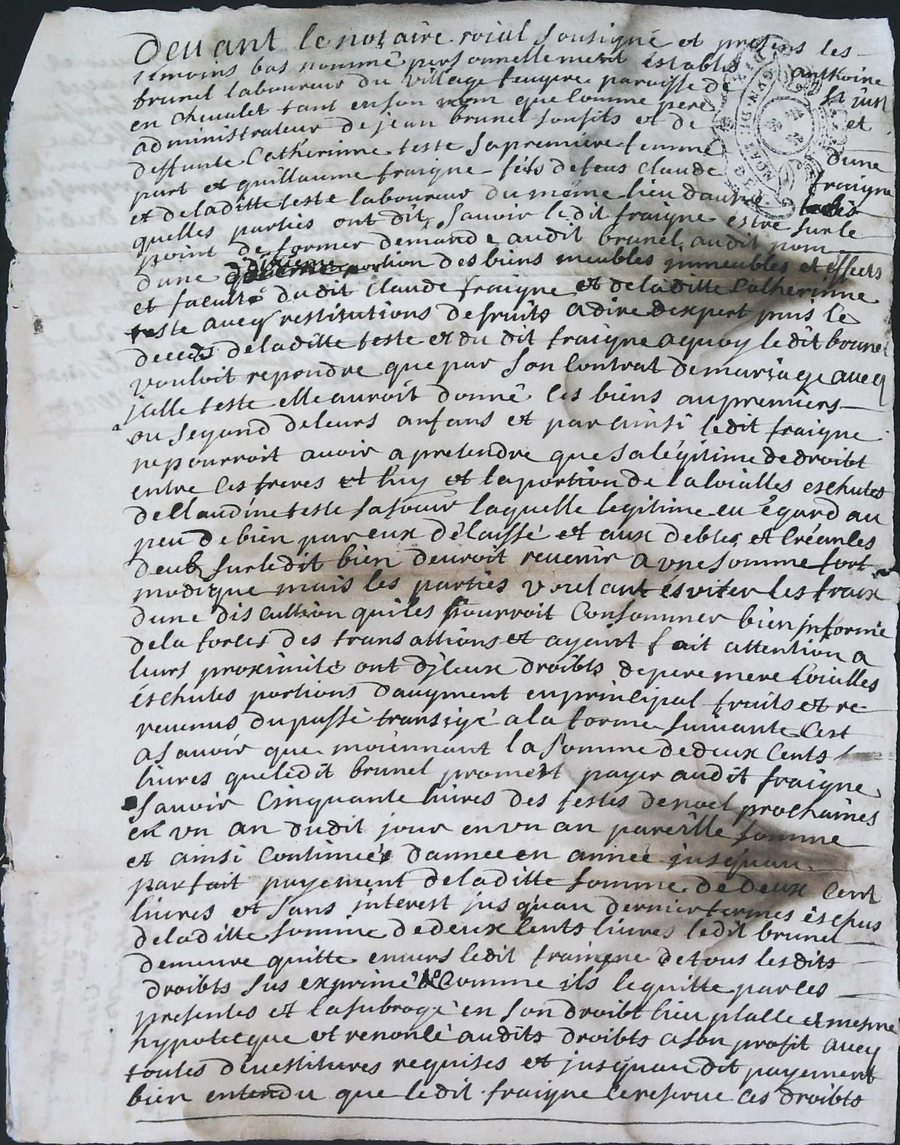 Devant le notaire roial sousigné et presens les
temoins bas nommé personnellement estably anthoine
brunel laboureur du village feugere paroisse de St just
en chevalet tant en son nom que comme pere et
administrateur de jean brunel son fils et de
deffunte Catherinne teste sa premiere femme dune
part et guillaume fraigne fils de feus Claude fraigne
et de laditte teste laboureur du même lieu dautre
quelles parties ont dit, Sauvoir ledit fraigne estre sur le
point de former demande audit brunel audit nom
dune portion des biens meubles immeubles et effects
et faculté dudit Claude fraigne et de laditte Catherinne
teste avecq restitutions de fruits a dire dexpert puis le
decedz de laditte teste et du dit fraigne a quoy ledit brunel
vouloit repondre que par son Contrat de mariage avecq
jcelle teste elle auroit donné ces biens au premiers
ou segond de leurs anfans et par ainsi ledit fraigne
ne pourroit avoir a pretendre que sa légitime de droibt
entre ces freres et luy et la portion de la loialles eschutes
de Claudine teste sa sœur laquelle legitime eu égard au
peu de bien par eux délaissé et aux debtes et Créances
deub sur ledit bien devroit revenir a une somme fort
modique mais les parties voulant esviter les fraix
dune discution qui les pourroit Consommer bien informé
de la forces des transactions et ayant fait attention a
leurs proximité ont djceux droibts de pere mere loialles
eschutes portions daugment en principal fruits et re
revenus du passé transigé a la forme suivante Cest
a savoir que moiennant la somme de deux Cents
livres que ledit brunel promest payer audit fraigne
Savoir Cinquante livres des festes de noel prochaines
en un an dudit jour en un an pareille somme
et ainsi Continuer dannee en année jusquau
parfait payement de laditte somme de deux Cent
livres et sans interest jusquau dernier termes eschus
de laditte somme de deux Cents livres ledit brunel
demeure quitte envers ledit fraigne de tous lesdits
droibts sus exprimé Comme ils le quitte par les
presentes et la subrogé en son droibt lieu place et mesme
hypotecque et renoncé audits droibts a son profit avecq
toutes devestitures requises et jusquau dit payement
bien entendu que ledit fraigne ce reserve ces droibts